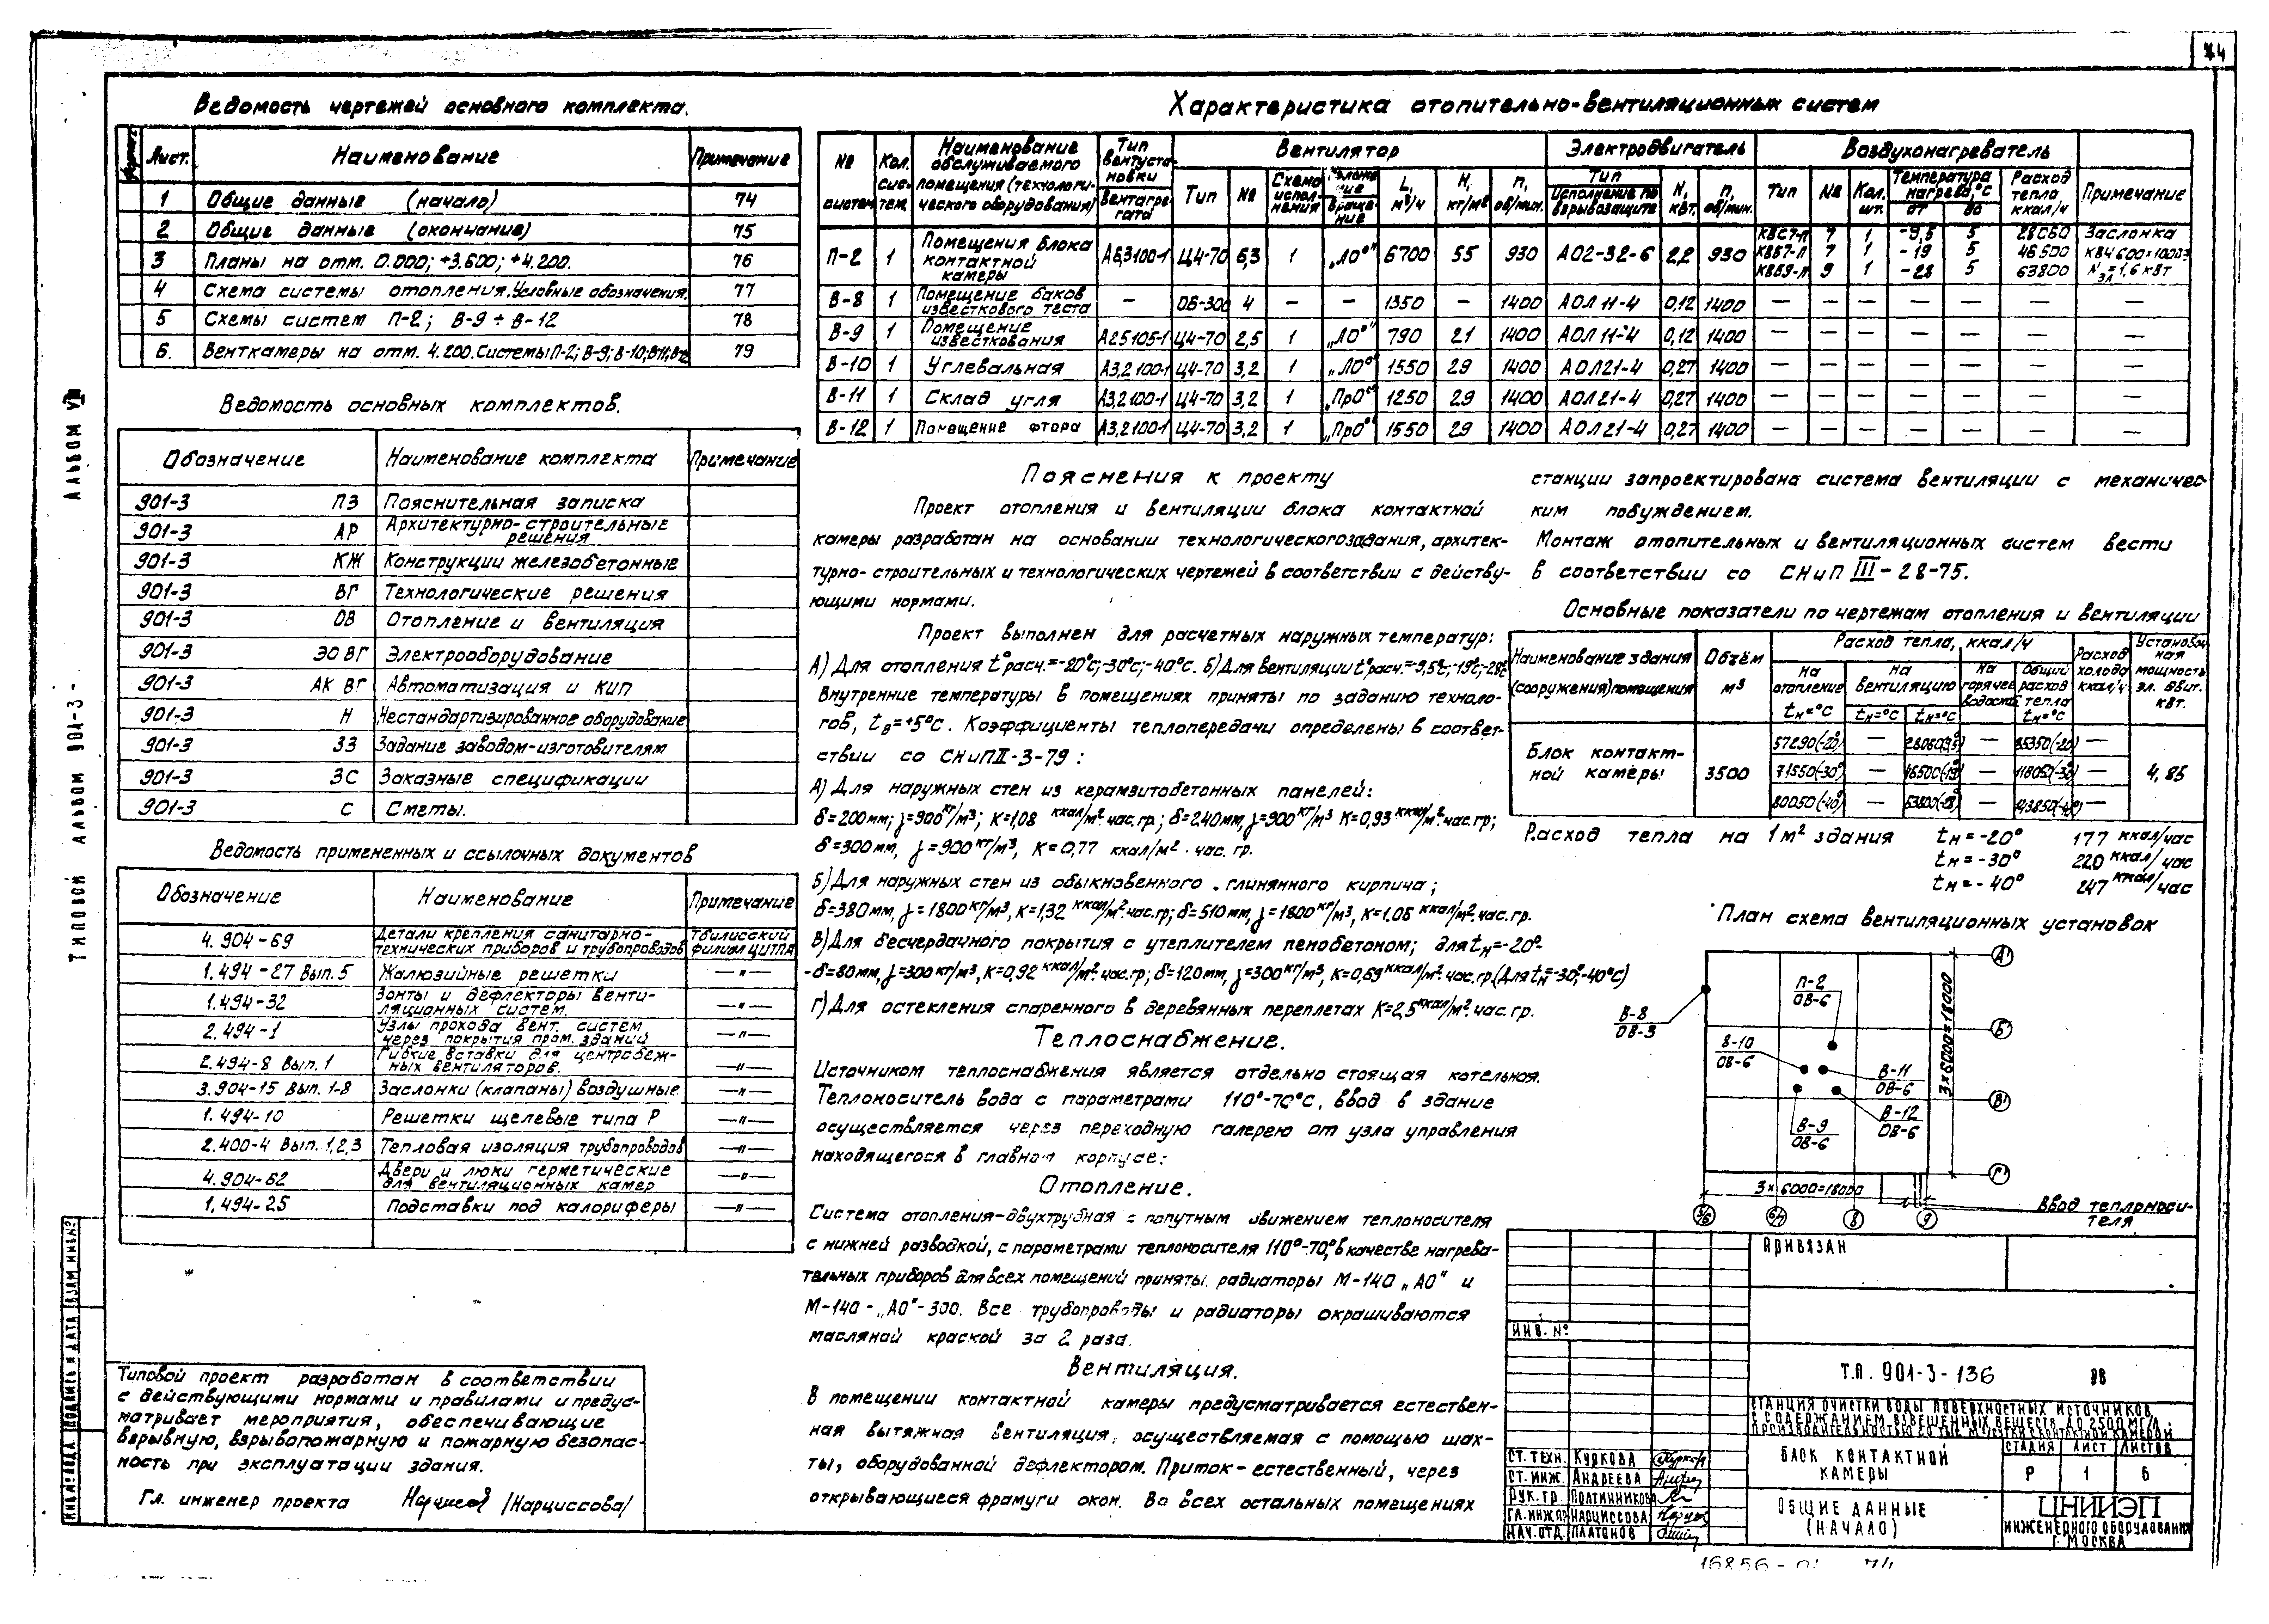 74
Ведомость чертежей основного комплекта.
Лист. Наименование Примечание
1 Общие данные (начало) 74
2 Общие данные (окончание) 75
3 Планы на отм. 0.000; +3.600; +4.200. 76
4 Схема системы отопления. Условные обозначения. 77
5 Схемы систем П-2; В-9 ÷ В-12 78
6. Венткамеры на отм. 4.200. Системы П-2; В-9; В-10; В-11; В-12 79
Ведомость основных комплектов.
Обозначение Наименование комплекта Примечание
901-3 ПЗ Пояснительная записка
901-3 АР Архитектурно-строительные решения
901-3 КЖ Конструкции железобетонные
901-3 ВГ Технологические решения
901-3 ОВ Отопление и вентиляция
901-3 ЭО ВГ Электрооборудование
901-3 АК ВГ Автоматизация и КИП
901-3 Н Нестандартизированное оборудование
901-3 ЗЗ Задание заводом-изготовителям
901-3 ЗС Заказные спецификации
901-3 С Сметы.
Ведомость примененных и ссылочных документов
Обозначение Наименование Примечание
4.904-69 Детали крепления санитарно-технических приборов и трубопроводов Тбилисский филиал ЦИТПА
1.494-27 Вып. 5 Жалюзийные решетки —"—
1.494-32 Зонты и дефлекторы вентиляционных систем. —"—
2.494-1 Узлы прохода вент. систем через покрытия пром. зданий —"—
2.494-8 Вып. 1 Гибкие вставки для центробежных вентиляторов. —"—
3.904-15 Вып. 1-8 Заслонки (клапаны) воздушные —"—
1.494-10 Решетки щелевые типа Р —"—
2.400-4 Вып. 1,2,3 Тепловая изоляция трубопроводов —"—
4.904-62 Двери и люки герметические для вентиляционных камер —"—
1.494-25 Подставки под калориферы —"—
Типовой проект разработан в соответствии
с действующими нормами и правилами и предус-
матривает мероприятия, обеспечивающие
взрывную, взрывопожарную и пожарную безопас-
ность при эксплуатации здания.
Гл. инженер проекта /Нарциссова/
Характеристика отопительно-вентиляционных систем
№ систем Кол. сис-тем. Наименование обслуживаемого помещения (технологи-ческого оборудования) Тип вентуста-новки Вентагре-гата Вентилятор Электродвигатель Воздухонагреватель
Тип № Схема испол-нения Положе-ние Враще-ние L, м³/ч H, кг/м² n, об/мин. Тип Исполнение по взрывозащите N, кВт. n, об/мин. Тип № Кол. шт. Температура нагрева, °С от до Расход тепла ккал/ч Примечание
П-2 1 Помещения блока контактной камеры А6,3100-1 Ц4-70 6,3 1 „Л0°" 6700 55 930 АО2-32-6 2,2 930
КВС7-п 7 1 -9,5 5 28060 Заслонка
КВБ7-п 7 1 -19 5 46500 КВЧ 600×1000Э
КВБ9-п 9 1 -28 5 63800 Nэл=1,6 кВт
В-8 1 Помещение баков известкового теста — ОВ-300 4 — — 1350 — 1400 АОЛ 11-4 0,12 1400 — — — — — — —
В-9 1 Помещение известкования А25105-1 Ц4-70 2,5 1 „Л0°" 790 21 1400 АОЛ 11-4 0,12 1400 — — — — — — —
В-10 1 Углевальная А3,2100-1 Ц4-70 3,2 1 „Л0°" 1550 29 1400 АОЛ21-4 0,27 1400 — — — — — — —
В-11 1 Склад угля А3,2100-1 Ц4-70 3,2 1 „Пр0°" 1250 29 1400 АОЛ21-4 0,27 1400 — — — — — — —
В-12 1 Помещение фтора А3,2100-1 Ц4-70 3,2 1 „Пр0°" 1550 29 1400 АОЛ21-4 0,27 1400 — — — — — — —
Пояснения к проекту
Проект отопления и вентиляции блока контактной
камеры разработан на основании технологического задания, архитек-
турно-строительных и технологических чертежей в соответствии с действу-
ющими нормами.
Проект выполнен для расчетных наружных температур:
А) Для отопления t°расч.=-20°с;-30°с;-40°с. Б) Для вентиляции t°расч.=-9,5°с;-19°с;-28°с
Внутренние температуры в помещениях приняты по заданию техноло-
гов, tв=+5°С. Коэффициенты теплопередачи определены в соответ-
ствии со СНиП II-3-79:
А) Для наружных стен из керамзитобетонных панелей:
δ=200мм; γ=900кг/м³; К=1,08 ккал/м².час.гр.; δ=240мм, γ=900кг/м³ К=0,93 ккал/м².час.гр;
δ=300мм, γ=900кг/м³, К=0,77 ккал/м².час.гр.
Б) Для наружных стен из обыкновенного глинянного кирпича;
δ=380мм, γ=1800кг/м³, К=1,32 ккал/м².час.гр; δ=510мм, γ=1800кг/м³, К=1,06 ккал/м².час.гр.
В) Для бесчердачного покрытия с утеплителем пенобетоном; для tн=-20°-
-δ=80мм, γ=300кг/м³, К=0,92 ккал/м².час.гр; δ=120мм, γ=300кг/м³, К=0,69 ккал/м².час.гр. (Для tн=-30°;-40°С)
Г) Для остекления спаренного в деревянных переплетах К=2,5 ккал/м².час.гр.
Теплоснабжение.
Источником теплоснабжения является отдельно стоящая котельная.
Теплоноситель вода с параметрами 110°-70°С, ввод в здание
осуществляется через переходную галерею от узла управления
находящегося в главном корпусе:
Отопление.
Система отопления-двухтрубная с попутным движением теплоносителя
с нижней разводкой, с параметрами теплоносителя 110°-70°, в качестве нагрева-
тельных приборов для всех помещений приняты радиаторы М-140 „АО" и
М-140-„АО"-300. Все трубопроводы и радиаторы окрашиваются
масляной краской за 2 раза.
Вентиляция.
В помещении контактной камеры предусматривается естествен-
ная вытяжная вентиляция, осуществляемая с помощью шах-
ты, оборудованной дефлектором. Приток-естественный, через
открывающиеся фрамуги окон. Во всех остальных помещениях
станции запроектирована система вентиляции с механичес-
ким побуждением.
Монтаж отопительных и вентиляционных систем вести
в соответствии со СНиП III-28-75.
Основные показатели по чертежам отопления и вентиляции
Наименование здания (сооружения) помещения Объём м³ Расход тепла, ккал/ч Расход холода ккал/ч Установоч-ная мощность эл. двиг. кВт.
на отопление tн=°С на вентиляцию tн=°С tн=°С на горячее водосн. Общий расход тепла tн=°С
Блок контакт-ной камеры 3500 4,85
57290(-20°) — 28060(-9,5°) — 85350(-20) —
71550(-30°) — 46500(-19°) — 118050(-30°) —
80050(-40°) — 63800(-28°) — 143850(-40°) —
Расход тепла на 1м² здания tн=-20° 177 ккал/час
tн=-30° 220 ккал/час
tн=-40° 247 ккал/час
План схема вентиляционных установок
В-8 ОВ-3
П-2 ОВ-6
В-10 ОВ-6
В-11 ОВ-6
В-9 ОВ-6
В-12 ОВ-6
3×6000=18000
3×6000=18000
А' Б' В' Г'
5/6 6/7 8 9
Ввод теплоноси-
теля
Привязан
Инв. №
Т.П. 901-3-136 ОВ
Станция очистки воды поверхностных источников
с содержанием взвешенных веществ до 2500 мг/л
Блок контактной камеры
Стадия Лист Листов
Р 1 6
Общие данные
(начало)
ЦНИИЭП
инженерного оборудования
г. Москва
Ст. техн. Куркова
Ст. инж. Андреева
Рук. гр. Полтинникова
Гл. инж. пр Нарциссова
Нач. отд. Платонов
Альбом VIII
Типовой альбом 901-3-
Инв. № подл. Подпись и дата Взам. инв. №
16856-01 74